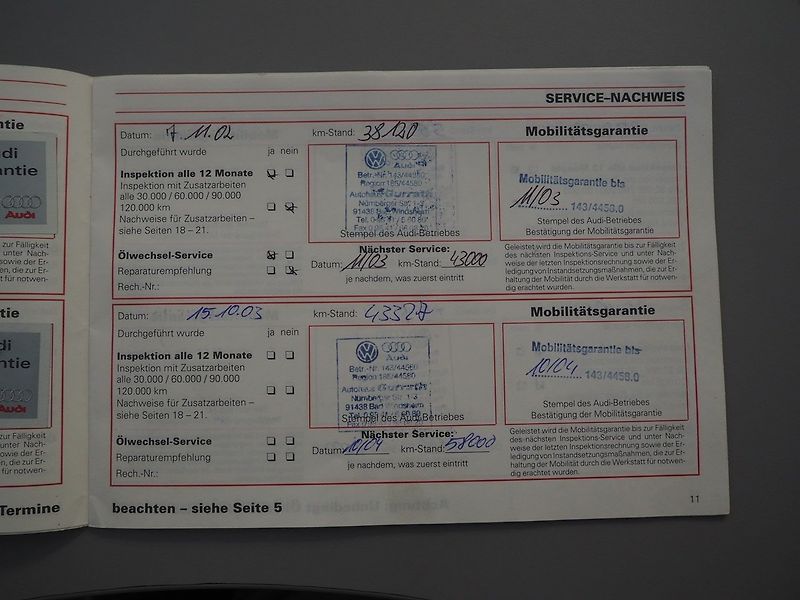 SERVICE–NACHWEIS
tie
di
antie
Audi
zur Fälligkeit
unter Nach-
sowie der Er-
en, die zur Er-
t für notwen-
Datum: 7. 11.02
km-Stand: 38120
Mobilitätsgarantie
Durchgeführt wurde ja nein
Inspektion alle 12 Monate
Inspektion mit Zusatzarbeiten
alle 30.000 / 60.000 / 90.000
120.000 km
Nachweise für Zusatzarbeiten –
siehe Seiten 18 – 21.
Ölwechsel-Service
Reparaturempfehlung
Rech.-Nr.:
Audi
Betr.-Nr. 143/44580
Region 185/44580
Autohaus
Nürnberger Str. 1-3
91438 Bad Windsheim
Stempel des Audi-Betriebes
Nächster Service:
Datum: 11/03 km-Stand: 43000
je nachdem, was zuerst eintritt
Mobilitätsgarantie bis
11/03 143/4458.0
Stempel des Audi-Betriebes
Bestätigung der Mobilitätsgarantie
Geleistet wird die Mobilitätsgarantie bis zur Fälligkeit
des nächsten Inspektions-Service und unter Nach-
weise der letzten Inspektionsrechnung sowie der Er-
ledigung von Instandsetzungsmaßnahmen, die zur Er-
haltung der Mobilität durch die Werkstatt für notwen-
dig erachtet wurden.
ntie
di
antie
Audi
zur Fälligkeit
unter Nach-
sowie der Er-
n, die zur Er-
t für notwen-
Datum: 15.10.03
km-Stand: 43327
Mobilitätsgarantie
Durchgeführt wurde ja nein
Inspektion alle 12 Monate
Inspektion mit Zusatzarbeiten
alle 30.000 / 60.000 / 90.000
120.000 km
Nachweise für Zusatzarbeiten –
siehe Seiten 18 – 21.
Ölwechsel-Service
Reparaturempfehlung
Rech.-Nr.:
Audi
Betr.-Nr. 143/44580
Region 185/44580
Autohaus
Nürnberger Str. 1-3
91438 Bad Windsheim
Stempel des Audi-Betriebes
Nächster Service:
Datum: 10/04 km-Stand: 58000
je nachdem, was zuerst eintritt
Mobilitätsgarantie bis
10/04 143/4458.0
Stempel des Audi-Betriebes
Bestätigung der Mobilitätsgarantie
Geleistet wird die Mobilitätsgarantie bis zur Fälligkeit
des nächsten Inspektions-Service und unter Nach-
weise der letzten Inspektionsrechnung sowie der Er-
ledigung von Instandsetzungsmaßnahmen, die zur Er-
haltung der Mobilität durch die Werkstatt für notwen-
dig erachtet wurden.
Termine
beachten – siehe Seite 5
11